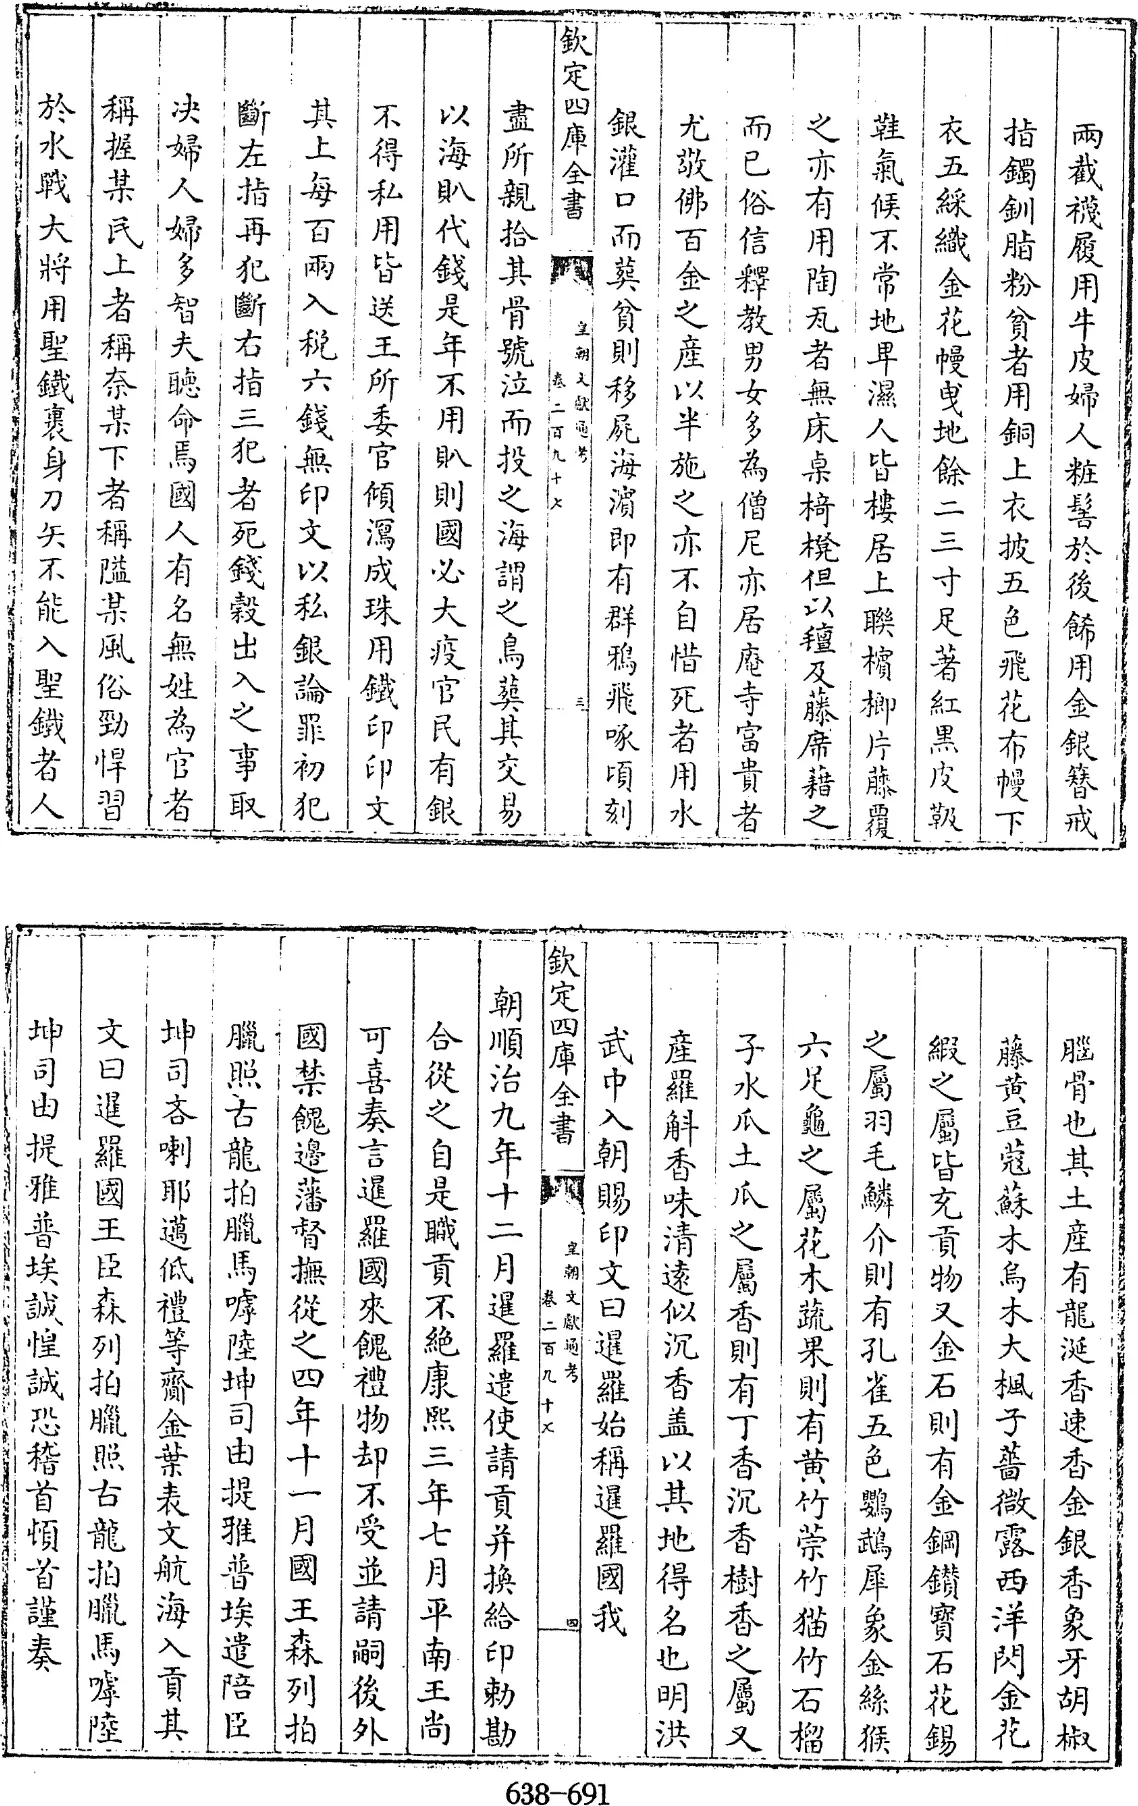 兩截襪履用牛皮婦人粧髻於後餙用金銀簪戒
指鐲釧脂粉貧者用銅上衣披五色飛花布幔下
衣五綵織金花幔曳地餘二三寸足著紅黒皮靸
鞋氣候不常地卑濕人皆樓居上聯檳榔片藤覆
之亦有用陶瓦者無床桌椅櫈但以氊及藤席藉之
而已俗信釋教男女多為僧尼亦居庵寺富貴者
尤敬佛百金之産以半施之亦不自惜死者用水
銀灌口而葬貧則移屍海濵即有群鴉飛啄頃刻
欽定四庫全書
皇朝文獻通考
卷二百九十七
三
盡所親拾其骨號泣而投之海謂之鳥葬其交易
以海𧴩代錢是年不用𧴩則國必大疫官民有銀
不得私用皆送王所委官傾瀉成珠用鐵印印文
其上每百兩入税六錢無印文以私銀論罪初犯
斷左指再犯斷右指三犯者死錢榖出入之事取
决婦人婦多智夫聽命焉國人有名無姓為官者
稱握某民上者稱奈某下者稱隘某風俗勁悍習
於水戰大將用聖鐵裹身刀矢不能入聖鐵者人
腦骨也其土産有龍涎香速香金銀香象牙胡椒
藤黄豆蔻蘇木烏木大楓子薔薇露西洋閃金花
緞之屬皆充貢物又金石則有金鋼鑚寶石花錫
之屬羽毛鱗介則有孔雀五色鸚鵡犀象金絲猴
六足龜之屬花木蔬果則有黄竹䇯竹猫竹石榴
子水瓜土瓜之屬香則有丁香沉香樹香之屬又
産羅斛香味清逺似沉香盖以其地得名也明洪
武中入朝賜印文曰暹羅始稱暹羅國我
欽定四庫全書
皇朝文獻通考
卷二百九十七
四
朝順治九年十二月暹羅遣使請貢并換給印勅勘
合從之自是職貢不絶康熙三年七月平南王尚
可喜奏言暹羅國來餽禮物却不受並請嗣後外
國禁餽邊藩督撫從之四年十一月國王森列拍
臘照古龍拍臘馬嘑陸坤司由提雅普埃遣陪臣
坤司吝喇耶邁低禮等齎金葉表文航海入貢其
文曰暹羅國王臣森列拍臘照古龍拍臘馬嘑陸
坤司由提雅普埃誠惶誠恐稽首頓首謹奏
638-691